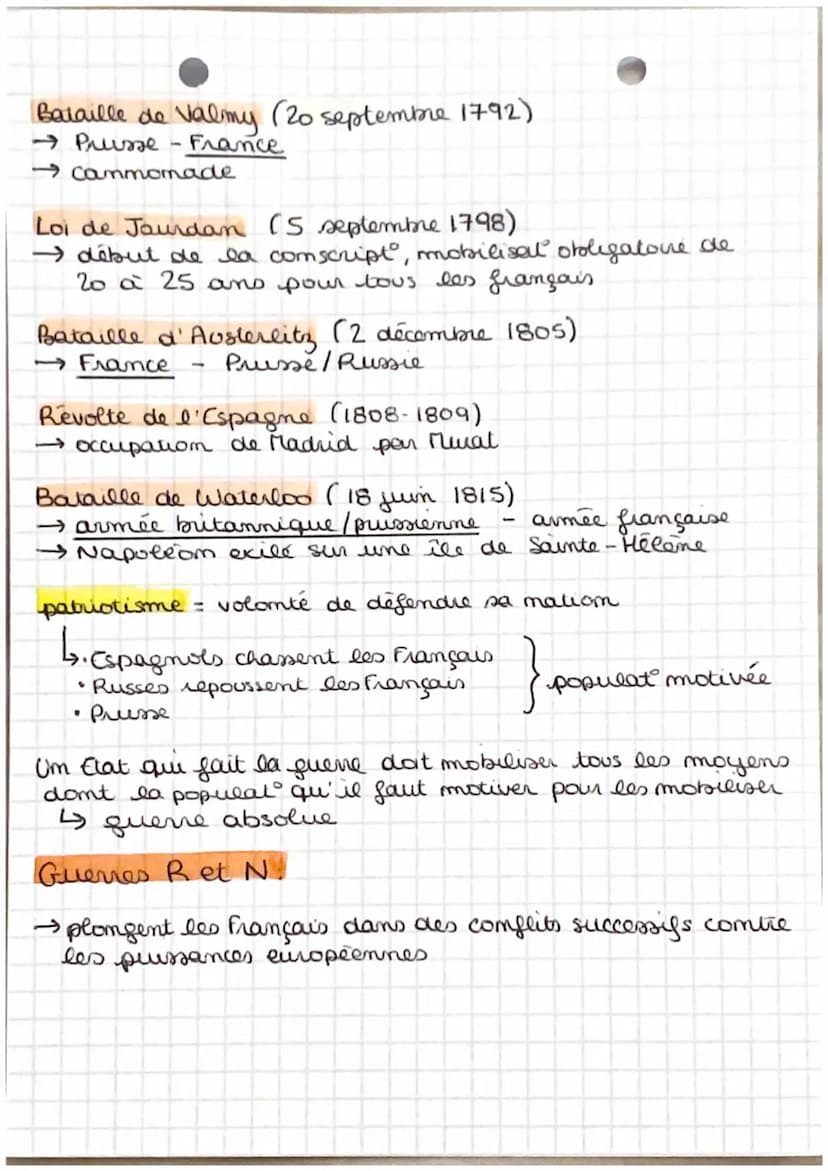 Bataille de Valmy (20 septembre 1792)
→ Prusse - France
→ cannonade
Loi de Jourdan (5 septembre 1798)
→ début de la conscript°, mobilisat° obligatoire de
20 à 25 ans pour tous les français
Bataille d'Austerlitz (2 décembre 1805)
→ France - Prusse/Russie
Révolte de l'Espagne (1808-1809)
→ occupation de Madrid par Murat
Bataille de Waterloo (18 juin 1815)
→ armée britannique/prussienne - armée française
→ Napoléon exilé sur une île de Sainte-Hélène
patriotisme = volonté de défendre sa nation
↳ • Espagnols chassent les Français
• Russes repoussent les Français } populat° motivée
• Prusse
Un Etat qui fait la guerre doit mobiliser tous les moyens
dont la populat° qu'il faut motiver pour les mobiliser
↳ guerre absolue
Guerres R et N :
→ plongent les Français dans des conflits successifs contre
les puissances européennes